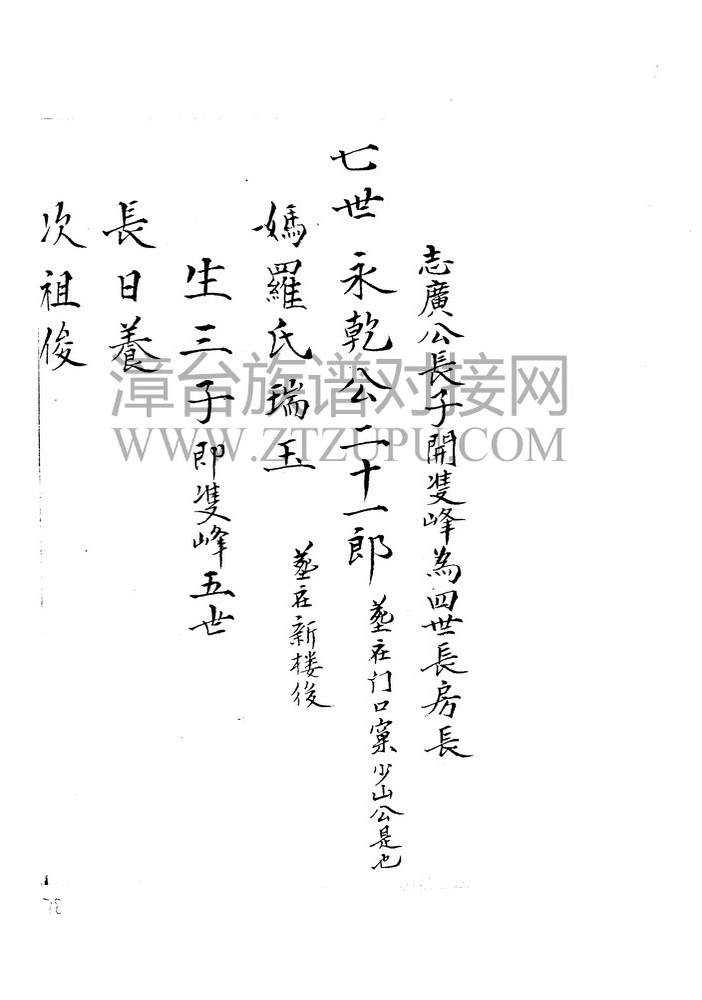 志廣公長子開雙峰為四世長房長
七世 永乾公二十一郎 墓在门口窠少山公是也
媽羅氏瑞玉 墓在新楼後
生三子即雙峰五世
長日養
次祖俊
漳台族谱对接网
WWW.ZTZUPU.COM